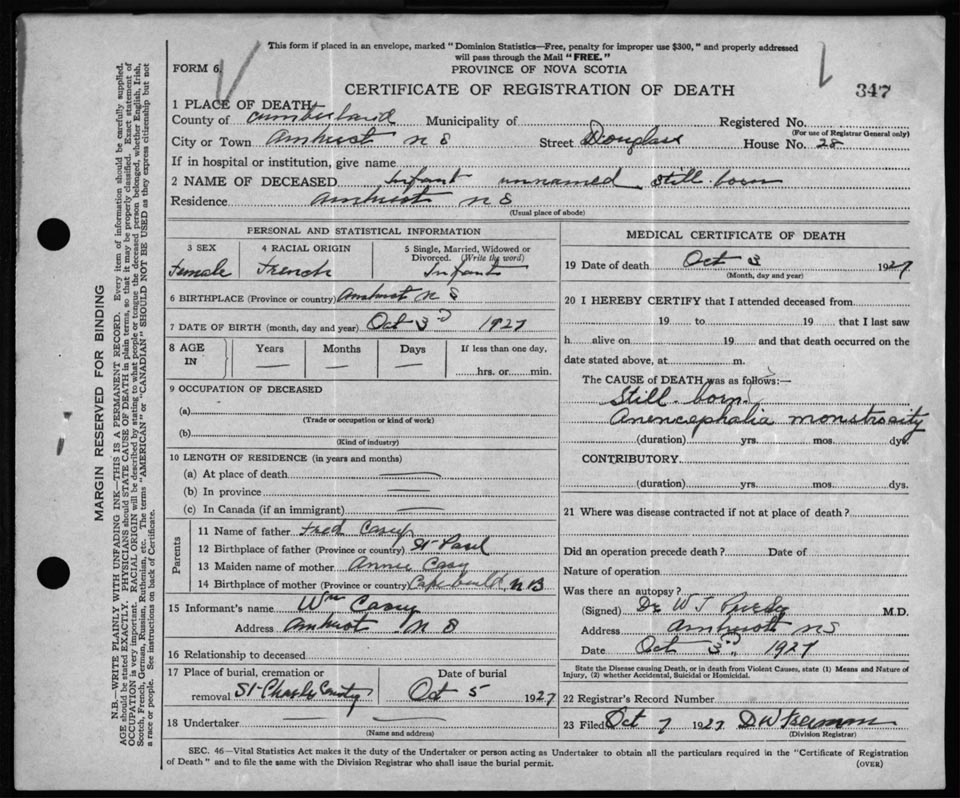 This form if placed in an envelope, marked "Dominion Statistics—Free, penalty for improper use $300," and properly addressed
will pass through the Mail "FREE."
FORM 6.
PROVINCE OF NOVA SCOTIA
CERTIFICATE OF REGISTRATION OF DEATH
347
1 PLACE OF DEATH
County of Cumberland Municipality of Registered No.
(For use of Registrar General only)
City or Town Amherst N S Street Douglas House No. 28
If in hospital or institution, give name
2 NAME OF DECEASED Infant unnamed still-born
Residence Amherst N S
(Usual place of abode)
PERSONAL AND STATISTICAL INFORMATION
3 SEX 4 RACIAL ORIGIN 5 Single, Married, Widowed or
Divorced. (Write the word)
Female French Infant
6 BIRTHPLACE (Province or country) Amherst N S
7 DATE OF BIRTH (month, day and year) Oct 3rd 1927
8 AGE IN Years Months Days If less than one day,
— — — hrs. or min.
9 OCCUPATION OF DECEASED
(a)
(Trade or occupation or kind of work)
(b)
(Kind of industry)
10 LENGTH OF RESIDENCE (in years and months)
(a) At place of death —
(b) In province —
(c) In Canada (if an immigrant) —
Parents
11 Name of father Fred Casey
12 Birthplace of father (Province or country) St Paul
13 Maiden name of mother Annie Casy
14 Birthplace of mother (Province or country) Cape N B
15 Informant's name Wm Casey
Address Amherst N S
16 Relationship to deceased
17 Place of burial, cremation or Date of burial
removal St Charles Oct 5 1927
18 Undertaker — —
(Name and address)
MEDICAL CERTIFICATE OF DEATH
19 Date of death Oct 3 1927
(Month, day and year)
20 I HEREBY CERTIFY that I attended deceased from
19 to 19 that I last saw
h alive on 19 and that death occurred on the
date stated above, at m.
The CAUSE of DEATH was as follows:—
Still born.
Anencephalia monstrosity
(duration) yrs. mos. dys.
CONTRIBUTORY
(duration) yrs. mos. dys.
21 Where was disease contracted if not at place of death?
Did an operation precede death? Date of
Nature of operation
Was there an autopsy?
(Signed) Dr W T M.D.
Address Amherst NS
Date Oct 3rd, 1927
State the Disease causing Death, or in death from Violent Causes, state (1) Means and Nature of
Injury, (2) whether Accidental, Suicidal or Homicidal.
22 Registrar's Record Number
23 Filed Oct 7 1927 D W
(Division Registrar)
SEC. 46—Vital Statistics Act makes it the duty of the Undertaker or person acting as Undertaker to obtain all the particulars required in the "Certificate of Registration
of Death" and to file the same with the Division Registrar who shall issue the burial permit. (OVER)
MARGIN RESERVED FOR BINDING
N.B.—WRITE PLAINLY WITH UNFADING INK—THIS IS A PERMANENT RECORD. Every item of information should be carefully supplied.
AGE should be stated EXACTLY. PHYSICIANS should STATE CAUSE OF DEATH in plain terms, so that it may be properly classified. Exact statement of
OCCUPATION is very important. RACIAL ORIGIN will be described by stating to what people or tongue the deceased person belonged, whether English, Irish,
Scotch, French, German, Russian, Ruthenian, etc. The terms "AMERICAN" or "CANADIAN" SHOULD NOT BE USED as they express citizenship but not
a race or people. See instructions on back of Certificate.